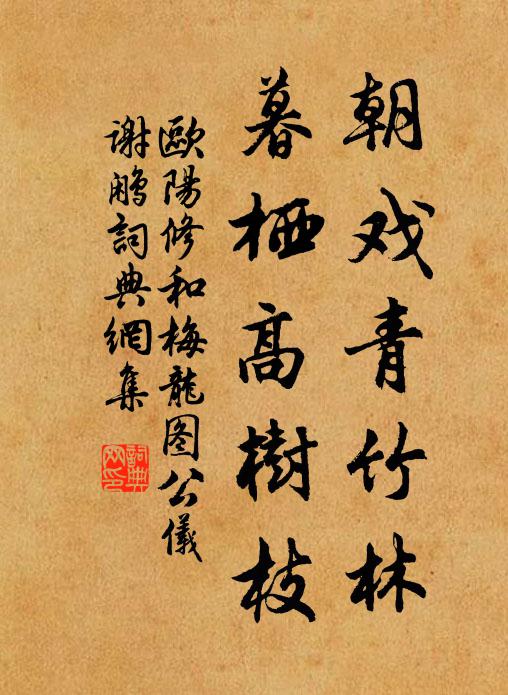 朝戏青竹林
暮栖高樹枝
歐陽修和梅龍图公儀
谢鹇詞典網集
詞典
网印